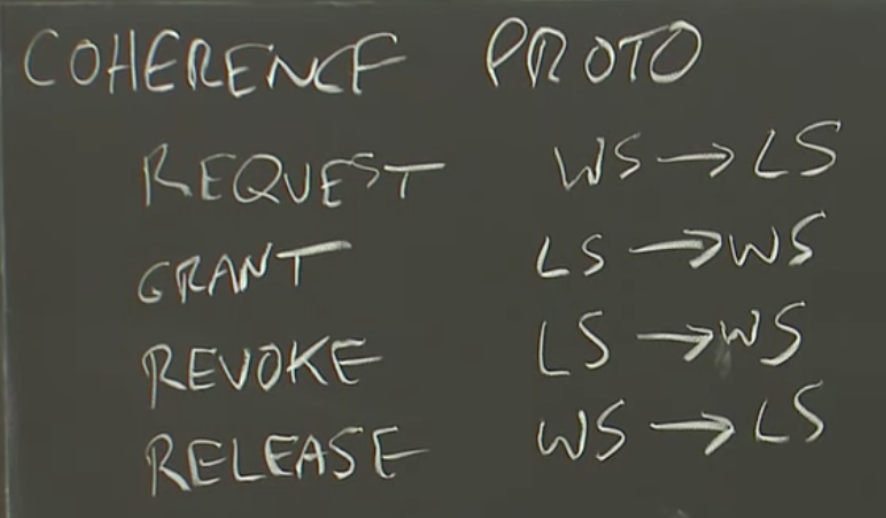 COHERENCE PROTO
REQUEST WS → LS
GRANT LS → WS
REVOKE LS → WS
RELEASE WS → LS